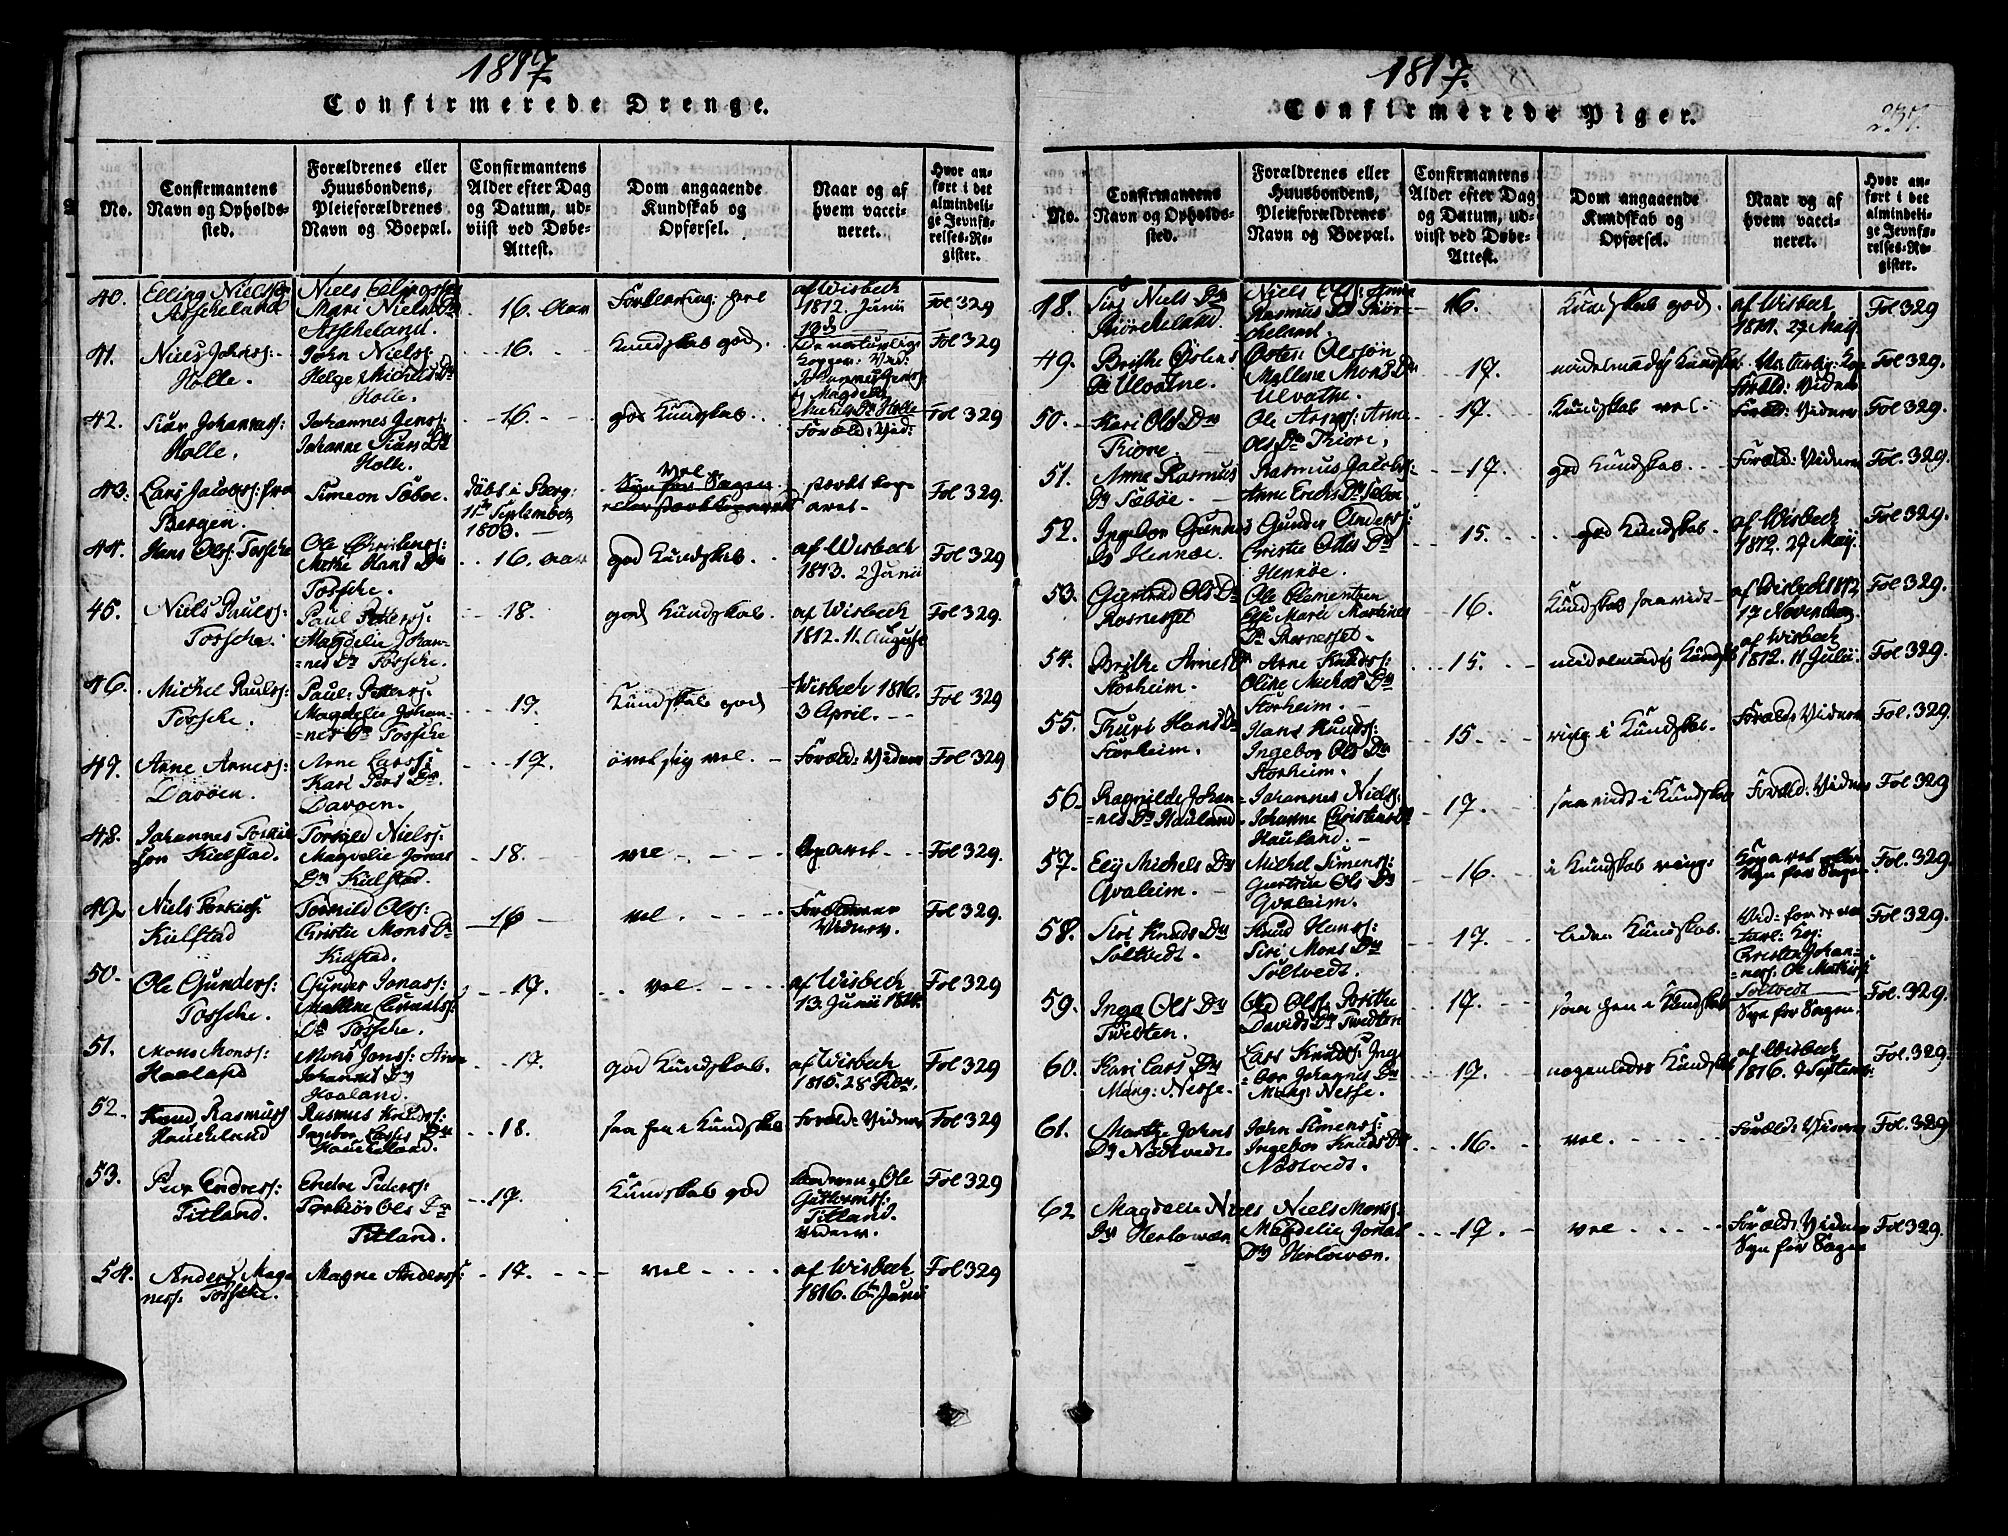 1817
Confirmerede Drenge.
No.
Confirmantens
Navn og Opholds-
sted.
Forældrenes eller
Huusbondens,
Pleieforældrenes
Navn og Boepæl.
Confirmantens
Alder efter Dag
og Datum, ud-
viist ved Døbe-
Attest.
Dom angaaende
Kundskab og
Opførsel.
Naar og af
hvem vacci-
neret.
Hvor an-
ført i det
almindeli-
ge Jevnfø-
relses-Re-
gister.
40. Elling Niels
Niels
Mari Niels Dr
16. Aar
af Wisbech
1812. Junii
Fol 329
41. Niels Johns:
Holle.
John Niels:
Helge Michels Dr
Holle.
16.
Kundskab god.
De naturlige
Kopper: Vid:
Fol 329
42. Siur Johanness:
Holle.
Johannes Jenss:
Johanne Siurs Dr
Holle.
16
god Kundskab.
Foræld: Vid:
Fol 329
43. Lars Jacobs: fra
Bergen.
Simeon Sæboe.
døbt i Berg:
11te September
1803.
vel
Syn for Sagen
Fol 329
44. Hans Ols: Tossche
Ole
Mette Hans Dr
Tossche.
16. Aar
god Kundskab.
af Wisbech
1813. 2 Junii
Fol 329
45. Niels Pauls:
Tossche.
Paul Peters:
Magdelie Johan-
nes Dr Tossche.
18.
god Kundskab.
af Wisbech
1812. 11 August
Fol 329.
46. Michel Pauls:
Tossche.
Paul: Peters:
Magdelie Johan-
nes Dr Tossche
19.
Kundskab god
Wisbech 1816.
3 April.
Fol 329
47. Arne Arness:
Davøen.
Arne Larss:
Kari Pers Dr.
Davøen.
17.
vel.
Foræld: Vidner
Fol 329
48. Johannes Torkil
sen Kielstad.
Torkild Nielss:
Magdelie Jonas
Dr Kielstad.
18.
vel
Fol 329.
49. Niels Torkilds:
Kielstad
Torkild Ols:
Christie Mons Dr
Kielstad.
16
vel.
Forældrene
Vidner.
Fol 329.
50. Ole Gunders:
Tossche.
Gunder Jonass:
Mallene
Dr Tossche.
17.
vel.
af Wisbech
13. Junii 1814.
Fol 329
51. Mons Monss:
Haaland
Mons Jonss: Anne
Johannes Dr
Haaland.
17.
god Kundskab.
af Wisbech
1816. 28
Fol 329
52. Knud Rasmuss
Haucheland
Rasmus Knudss:
Ingebor Larses Dr
Haucheland.
18.
saa hen i Kundskab
Foræld: Vidner
Fol 329
53. Peer Endress:
Titland.
Endre Pederss:
Torbiør Ols Dr
Titland.
17.
Kundskab god
Ole
Guttormss:
Titland.
Vidner.
Fol 329
54. Anders Mag-
ness: Tossche.
Magne Anderss:
17.
vel
af Wisbech
1816. 6te Junii
Fol 329
1817.
Confirmerede Piger.
237.
No.
Confirmantens
Navn og Opholds-
sted.
Forældrenes eller
Huusbondens,
Pleieforældrenes
Navn og Boepæl.
Confirmantens
Alder efter Dag
og Datum, ud-
viist ved Døbe-
Attest.
Dom angaaende
Kundskab og
Opførsel.
Naar og af
hvem vacci-
neret.
Hvor an-
ført i det
almindeli-
ge Jevnfø-
relses-Re-
gister.
48. Siri Niels Dr
Biørcheland.
Niels Ols: Anne
Rasmus Dr Biør-
cheland.
16.
Kundskab god.
af Wisbech
1811. 27 Maij
Fol 329
49. Brithe Østens
Dr Ulvatne.
Østen Olssøn
Mallene Mons Dr
Ulvatne.
17.
middelmadig Kundskab
Foræld: Vidner
Fol 329.
50. Kari Ols Dr
Thiore.
Ole Arness: Anne
Ols Dr Thiore,
17.
Kundskab vel.
Foræld: Vidner
Fol 329.
51. Anne Rasmus
Dr Sæbøe.
Rasmus Jacobs:
Anne Erichs Dr Sæboe
17.
god Kundskab.
Foræld: Vidner
Fol. 329.
52. Ingebor Gunders
Dr Hennøe.
Gunder Anders:
Christie Ottes Dr
Hennøe.
15.
god Kundskab.
af Wisbech
1812. 27 Maij.
Fol 329.
53. Giertrud Ols Dr
Rosnesset
Ole Clamentsen
Else Marie Martines
Dr Rosnesset.
16.
Kundskab saavidt
af Wisbech 1812
17 November
Fol 329.
54. Brithe Arnes Dr
Storheim.
Arne Knuds:
Oline Michels Dr
Storheim.
15.
middelmadig Kundskab
af Wisbech
1812. 11 Julii
Fol 329.
55. Thuri Hans Dr
Storheim.
Hans Knuds:
Ingebor Ols Dr
Storheim.
15
ring i Kundskab.
Foræld: Vidner
Fol. 329.
56. Ragnilde Johan-
nes Dr Hauland
Johannes Nielss:
Johanne Christens Dr
Hauland.
17.
saavidt i Kundskab
Foræld: Vidner
Fol 329
57. Elij Michels Dr
Qvaleim.
Michel Simens:
Giertrue Ols Dr
Qvaleim.
16.
i Kundskab ring:
Syn for Sagen
Fol. 329.
58. Siri Knuds Dr
Soltvedt.
Knud Hanss:
Siri Mons Dr
Soltvedt.
17.
liden Kundskab.
Vid: for de na-
turl: Kop:
Christen Johan-
ness: Ole Mathiss:
Soltvedt
Fol 329.
59. Inga Ols Dr
Tvedten.
Ole Ols: Brithe
Davids Dr Tvedten
17.
saa hen i Kundskab
Syn for Sagen.
Fol. 329.
60. Kari Lars Dr
Mang: Nesse.
Lars Knuds: Inge-
bor Johannes Dr
Mang: Nesse.
17.
nogenledes Kundskab
af Wisbech
1816. Septemb:
Fol 329.
61. Marthe Johns
Dr Nøstvedt.
John Simens:
Ingebor Knuds Dr
Nøstvedt.
16.
vel.
Foræld: Vidner
Fol. 329
62 Magdelie Niels
Dr Herlovær
Niels Mons:
Magdelie Jonas
Dr Herlovær.
17.
vel.
Foræld: Vidner
Syn for Sagen
Fol 329.